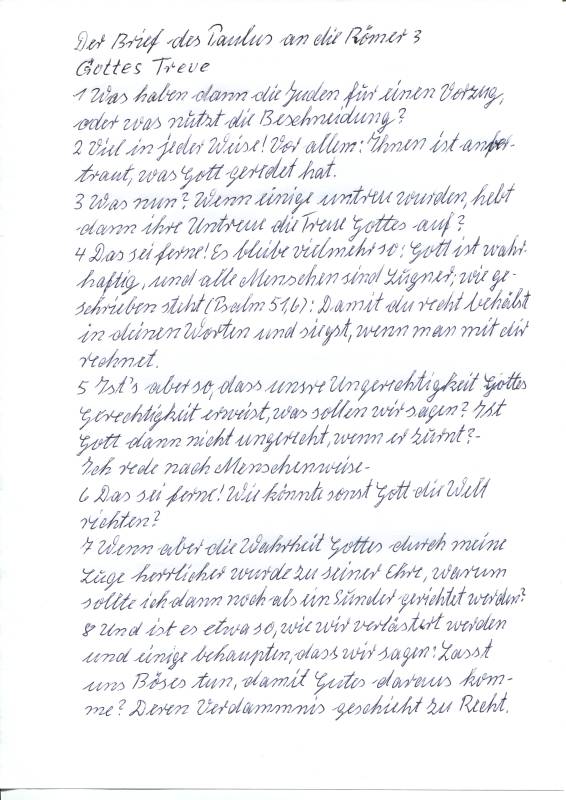 Der Brief des Paulus an die Römer 3
Gottes Treue
1 Was haben dann die Juden für einen Vorzug,
oder was nützt die Beschneidung?
2 Viel in jeder Weise! Vor allem: Ihnen ist anver-
traut, was Gott geredet hat.
3 Was nun? Wenn einige untreu wurden, hebt
dann ihre Untreue die Treue Gottes auf?
4 Das sei ferne! Es bleibe vielmehr so: Gott ist wahr-
haftig, und alle Menschen sind Lügner; wie ge-
schrieben steht (Psalm 51,6): Damit du recht behälst
in deinen Worten und siegst, wenn man mit dir
rechnet.
5 Ist's aber so, dass unsre Ungerechtigkeit Gottes
Gerechtigkeit erweist, was sollen wir sagen? Ist
Gott dann nicht ungerecht, wenn er zürnt?-
Ich rede nach Menschenweise-
6 Das sei ferne! Wie könnte sonst Gott die Welt
richten?
7 Wenn aber die Wahrheit Gottes durch meine
Lüge herrlicher wurde zu seiner Ehre, warum
sollte ich dann noch als ein Sünder gerichtet werden?
8 Und ist es etwa so, wie wir verlästert werden
und einige behaupten, dass wir sagen: Lasst
uns Böses tun, damit Gutes daraus kom-
me? Deren Verdammnis geschieht zu Recht.